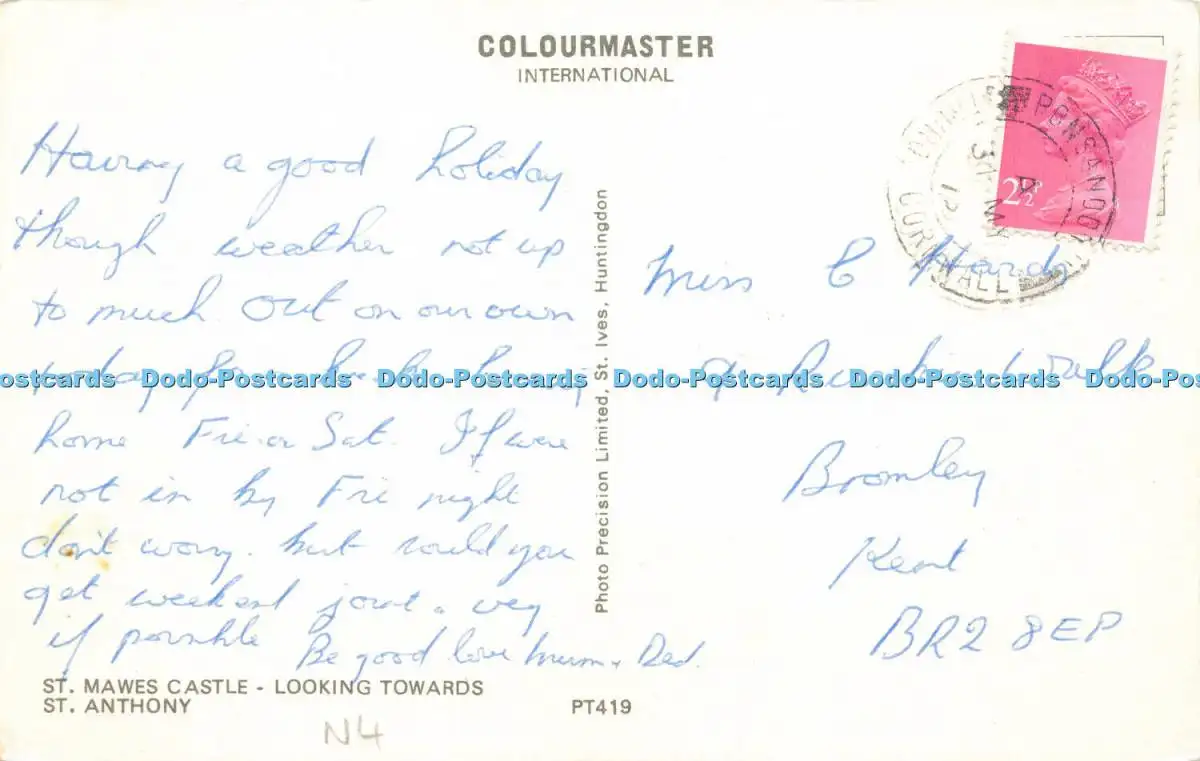 COLOURMASTER
INTERNATIONAL
Having a good holiday
though weather not up
to much. Out on our own
today
home Fri or Sat. If were
not in by Fri night
don't worry. but could you
get weekend joint & veg
if possible Be good love Mum & Dad.
ST. MAWES CASTLE - LOOKING TOWARDS
ST. ANTHONY
PT419
N4
Photo Precision Limited, St. Ives, Huntingdon
2½P
CORNWALL
Miss C Hardy
Walk
Bromley
Kent
BR2 8EP
ostcards Dodo-Postcards Dodo-Postcards Dodo-Postcards Dodo-Postcards Dodo-Pos